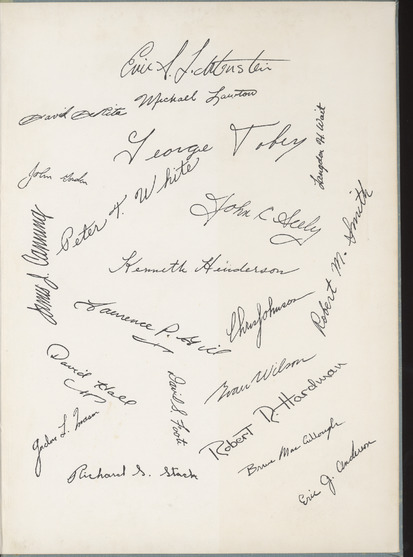 Eric S. Lichtenstein
David DeRita
Michael Lawton
George Tobey
Langdon H. Wait
John
Peter F. White
John C. Seely
James J. Canning
Robert M. Smith
Kenneth Hinderson
Laurence P.
Chris Johnson
David Hall
David S. Foote
Wilson
Robert R. Hardman
L.
Bruce MacCullough
Richard S. Stack
Eric J. Anderson